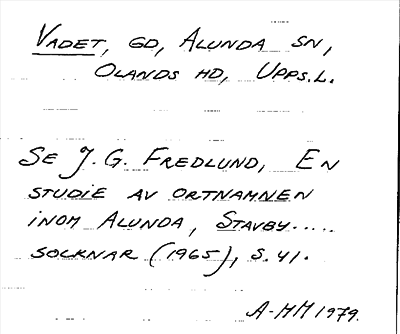 VADET, GD, ALUNDA SN,
OLANDS HD, UPPS.L.
SE J. G. FREDLUND, EN
STUDIE AV ORTNAMNEN
INOM ALUNDA, STAVBY.....
SOCKNAR (1965), S. 41.
A-MM 1979.